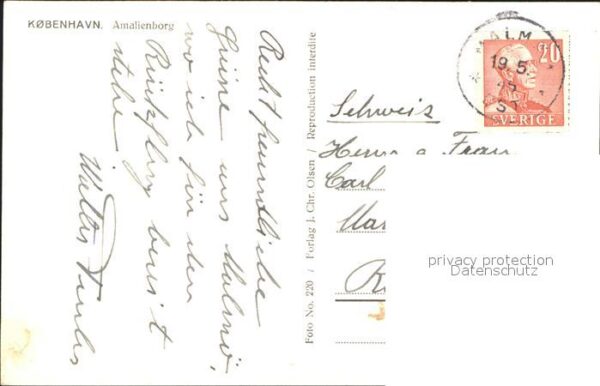 KØBENHAVN. Amalienborg
Recht freundliche
Grüsse aus Malmö,
wo ich für den
Rückflug bereit
stehe
Walter
Foto No. 220 / Forlag J. Chr. Olsen / Reproduction interdite
MALM
19.5.
20
SVERIGE
Schweiz
Herrn & Frau
Carl
privacy protection
Datenschutz